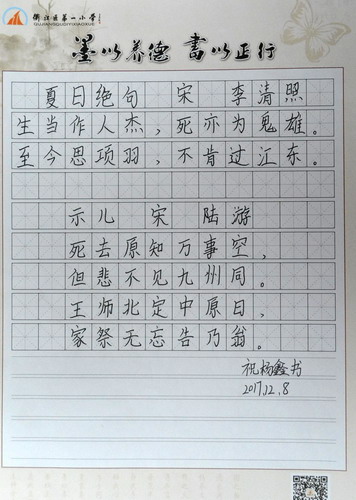 衢江区第一小学
墨以养德 书以正行
夏日绝句 宋 李清照
生当作人杰，死亦为鬼雄。
至今思项羽，不肯过江东。
示儿 宋 陆游
死去原知万事空，
但悲不见九州同。
王师北定中原日，
家祭无忘告乃翁。
祝杨鑫书
2017.12.8